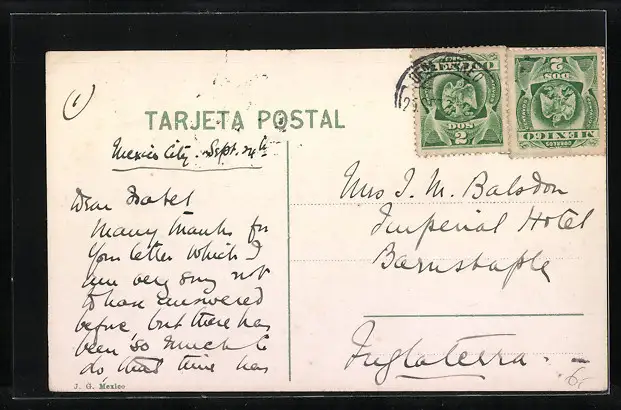 (1)
TARJETA POSTAL
Mexico City. Sept. 24th
Dear Isabel
Many thanks for
your letter which I
am very sorry not
to have answered
before but there has
been so much to
do that time has
J. G. Mexico
Mrs J. M. Balsdon
Imperial Hotel
Barnstaple
Inglaterra.
MEXICO
DOS
2
2
DOS
MEXICO